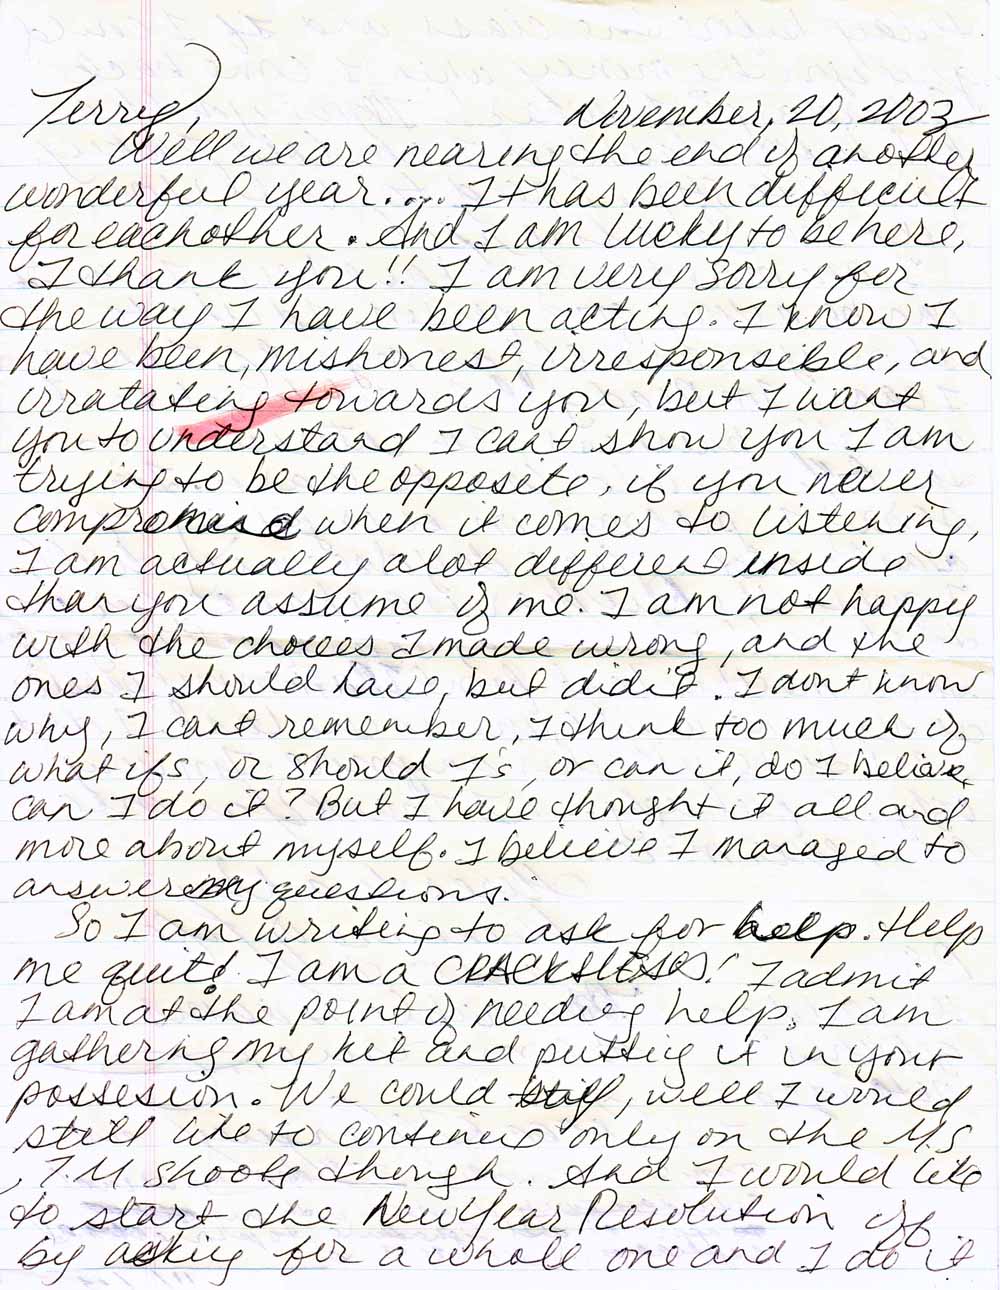 Terry, November, 20, 2003
Well we are nearing the end of another
wonderful year..... It has been difficult
for eachother. And I am lucky to be here,
I thank you!! I am very sorry for
the way I have been acting. I know I
have been, mishonest, irresponsible, and
irratating towards you, but I want
you to understand I cant show you I am
trying to be the opposite, if you never
compromised when it comes to listening,
I am actually alot different inside
than you assume of me. I am not happy
with the choices I made wrong, and the
ones I should have, but didn't. I dont know
why, I cant remember, I think too much of
what ifs, or should I's, or can it, do I believe
can I do it? But I have thought it all and
more about myself. I believe I managed to
answer my questions.
So I am writing to ask for help. Help
me quit! I am a ! I admit
I am at the point of needing help. I am
gathering my kit and putting it in your
possesion. We could still, well I would
still like to continue only on the M.S
, I.M shoots though. And I would like
to start the New Year Resolution off
by asking for a whole one and I do it